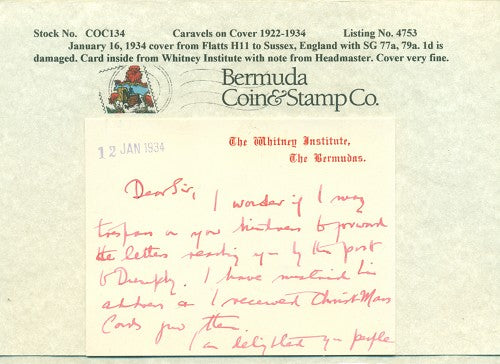 Stock No. COC134 Caravels on Cover 1922-1934 Listing No. 4753
January 16, 1934 cover from Flatts H11 to Sussex, England with SG 77a, 79a. 1d is
damaged. Card inside from Whitney Institute with note from Headmaster. Cover very fine.
Bermuda
Coin & Stamp Co.
The Whitney Institute,
The Bermudas.
12 JAN 1934
Dear Sir,
I wonder if I may
trespass on your kindness to forward
the letters reaching you by this post
to . I have mislaid his
address as I received Christ-Mas
Cards from them.
I am delighted you people